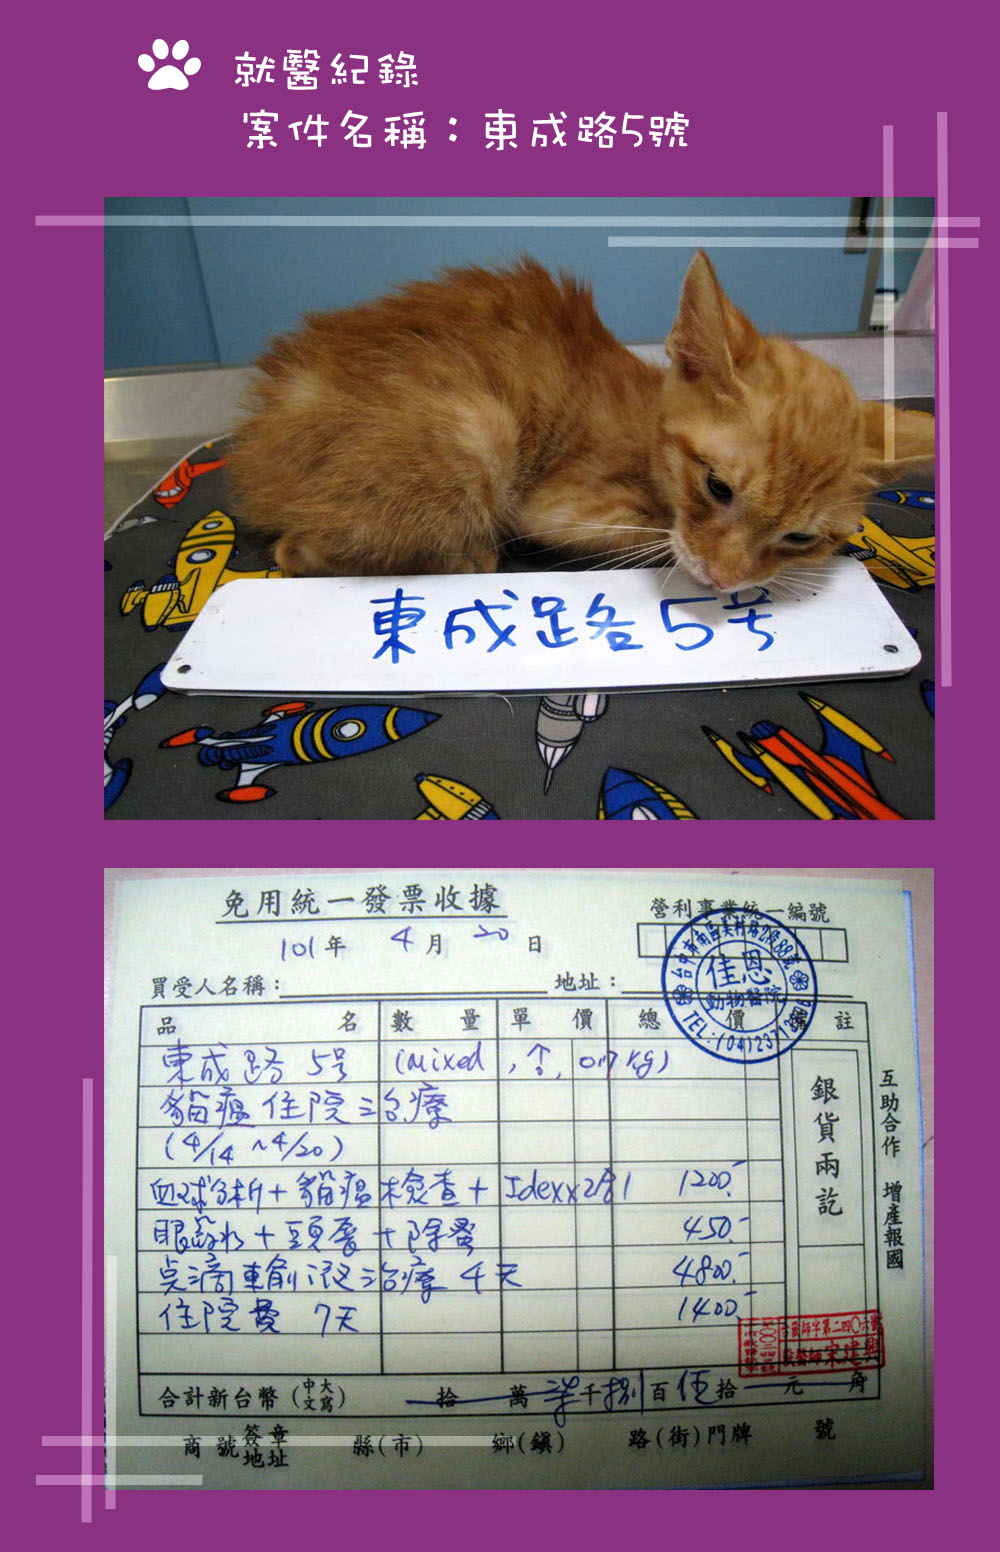 就醫紀錄
案件名稱：東成路5號
東成路5号
免用統一發票收據
營利事業統一編號
101年 4月 20日
買受人名稱： 地址：
品名 數量 單價 總價 備註
東成路 5号 (mixed, ↑, 0m7kg)
貓瘟住院治療
(4/14～4/20)
血球分析+貓瘟檢查+Idexx2合1 1200.-
眼藥水+頭套+除蚤 450.-
点滴輸液治療 4天 4800.-
住院費 7天 1400.-
銀貨兩訖
互助合作 增產報國
台中市南區美村路2段88號
佳恩
動物醫院
TEL:(04)2371
獸醫師 宋建興
合計新台幣(中文大寫) 拾 萬 柒千捌百伍拾 元 角
商號簽章地址 縣(市) 鄉(鎮) 路(街)門牌 號